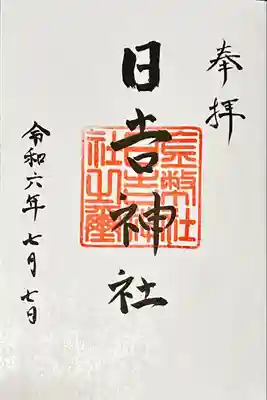 奉拝
日吉神社
令和六年七月七日